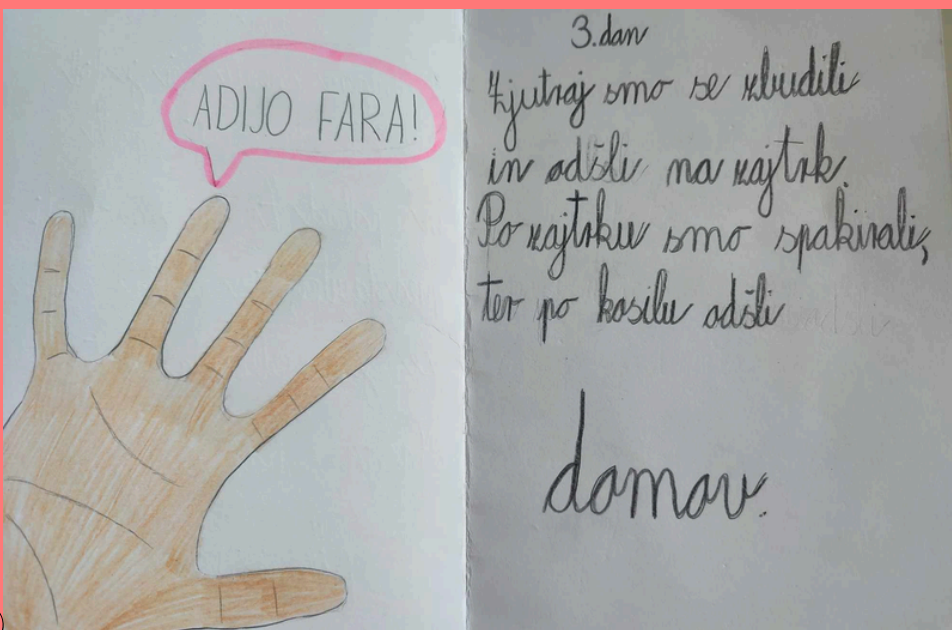 ADIJO FARA!
3. dan
Zjutraj smo se zbudili
in odšli na zajtrk.
Po zajtrku smo spakirali,
ter po kosilu odšli
domov.